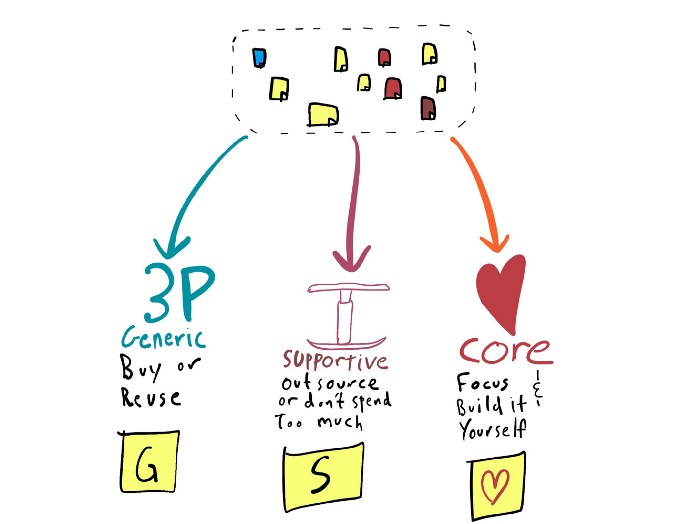 3P
Generic
Buy or
Reuse
G
supportive
outsource
or don't spend
Too much
S
core
Focus &
Build it
Yourself